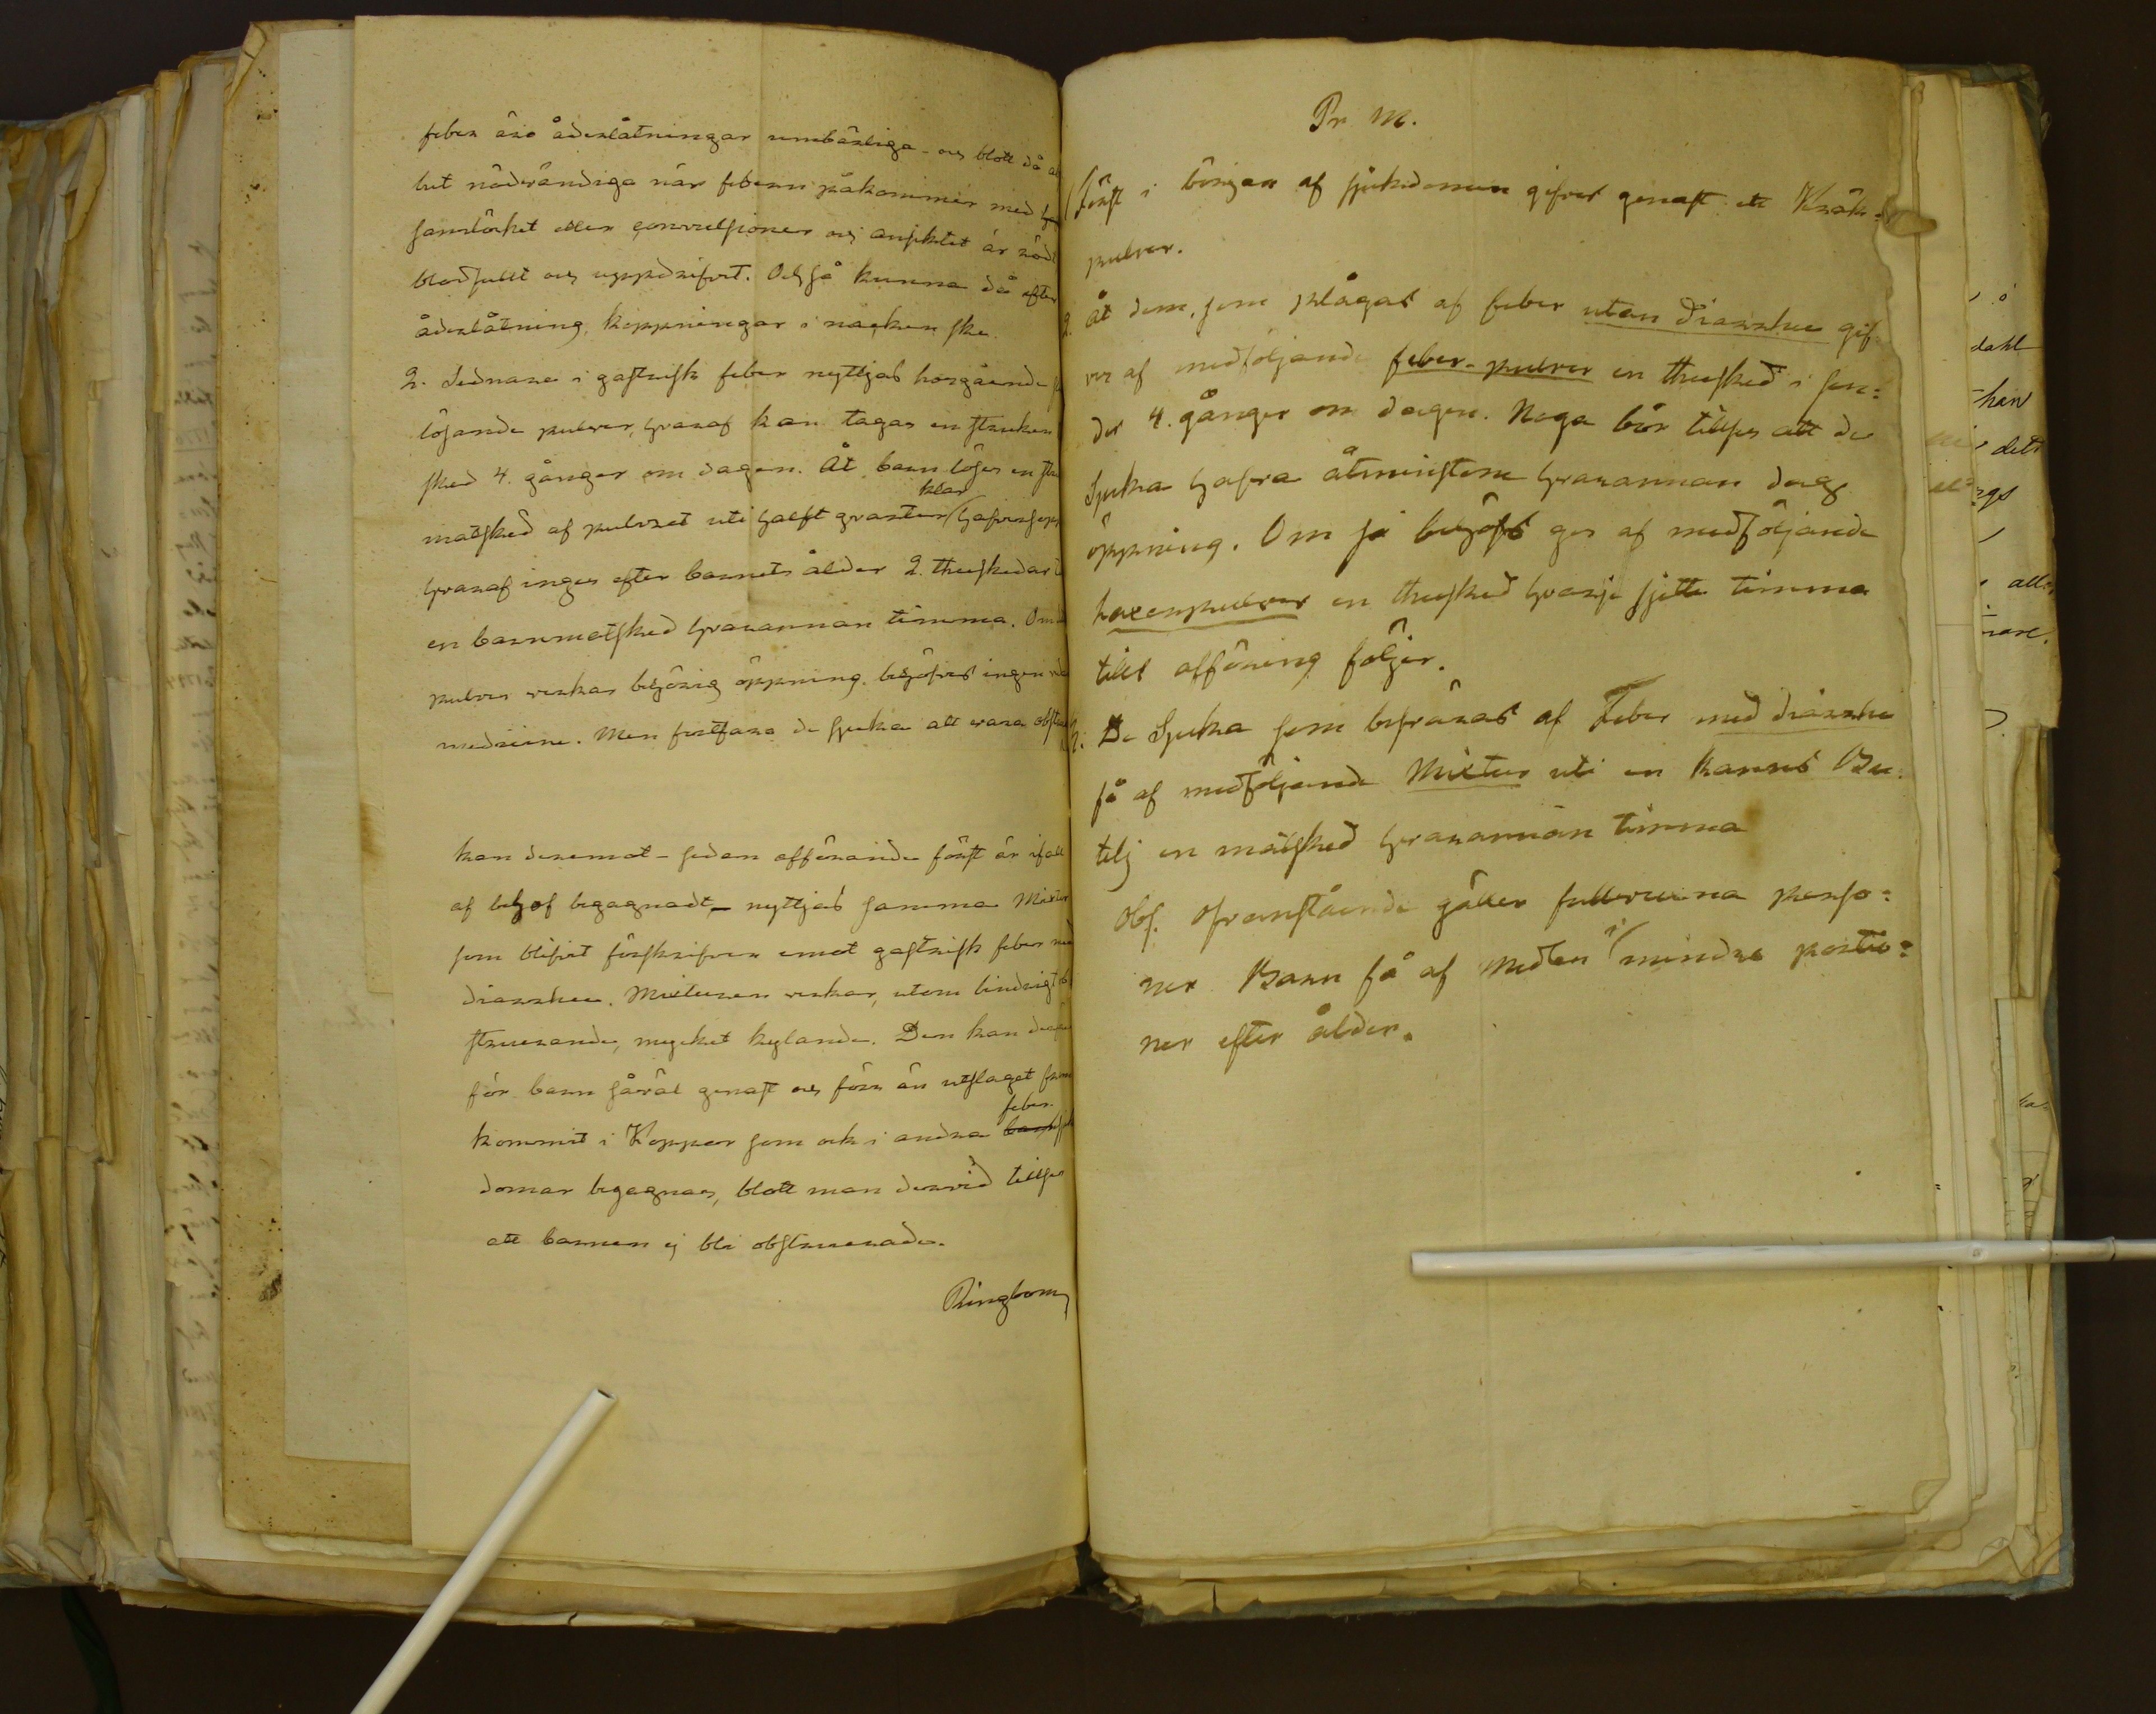 feber äro åderlåtningar umbärliga - och blott då
lut nödvändiga när febern påkommer med
sanslöshet eller convulsioner och ansiktet är rödt
blodfullt och uppdrifvit. Och så kunna då efter
åderlåtning, koppningar i nacken ske.
2. Sednare i gastrisk feber nyttjas hosgående
lösande pulver, hvaraf kan tagas en struken
sked 4. gånger om dagen. Åt barn löses en
klar
matsked af pulvret uti halft qvarter hafversopp
hvaraf inges efter barnets ålder 2. theskedar
en barnmatsked hvarannan timma. Om
pulver verkar behörig öppning, behöfves ingen
medicine. Men fortfara de sjuka att vara
kan deremot - sedan afförande först är ifall
af behof begagnadt - nyttjas samma Mixtur
som blifvit förskrifven emot gastrisk feber med
diarrhee. Mixturen verkar, utom lindrigt
struerande, mycket kylande. Den kan
för barn såväl genast och förr än utslaget fram
feber
kommit i Koppor som ock i andra
domar begagnas, blott man dervid tillser
att barnen ej bli obstruerade.
Ringbom
Pr. M.
Först i början af sjukdomen gifves genast ett Kräk-
pulver.
2. Åt dem, som plågas af feber utan diarrhee gif-
ves af medföljande feber-pulver en thesked i sen:
der 4. gånger om dagen. Noga bör tillses att de
Sjuka hafva åtminstone hvarannan dag
öppning. Om så behöfs ges af medföljande
laxerpulver en thesked hvarje sjette timma
tills afföring följer.
3. De Sjuka som besväras af Feber med diarrhee
få af medföljande Mixtur uti en kanns Bu-
telj en matsked hvarannan timma
Obs. Ofvanstående gäller fullvuxna perso:
i
ner Barn få af Medlen mindre portio:
ner efter ålder.
dahl
han
dets